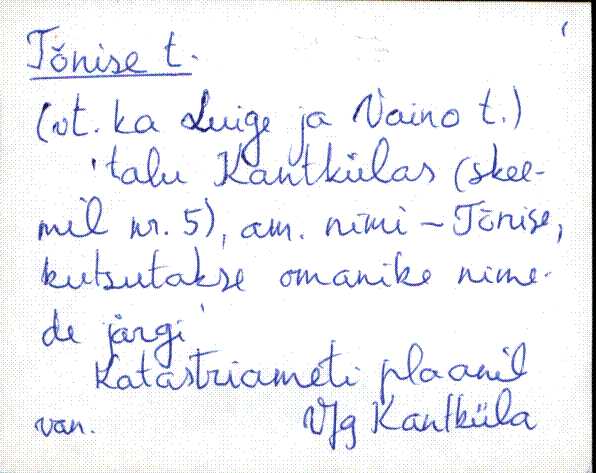 Tõnise t.
(vt. ka Luige ja Vaino t.)
'talu Kantkülas (skee-
mil nr. 5), am. nimi - Tõnise,
kutsutakse omanike nime-
de järgi'
Katastriameti plaanil
van. VJg Kantküla